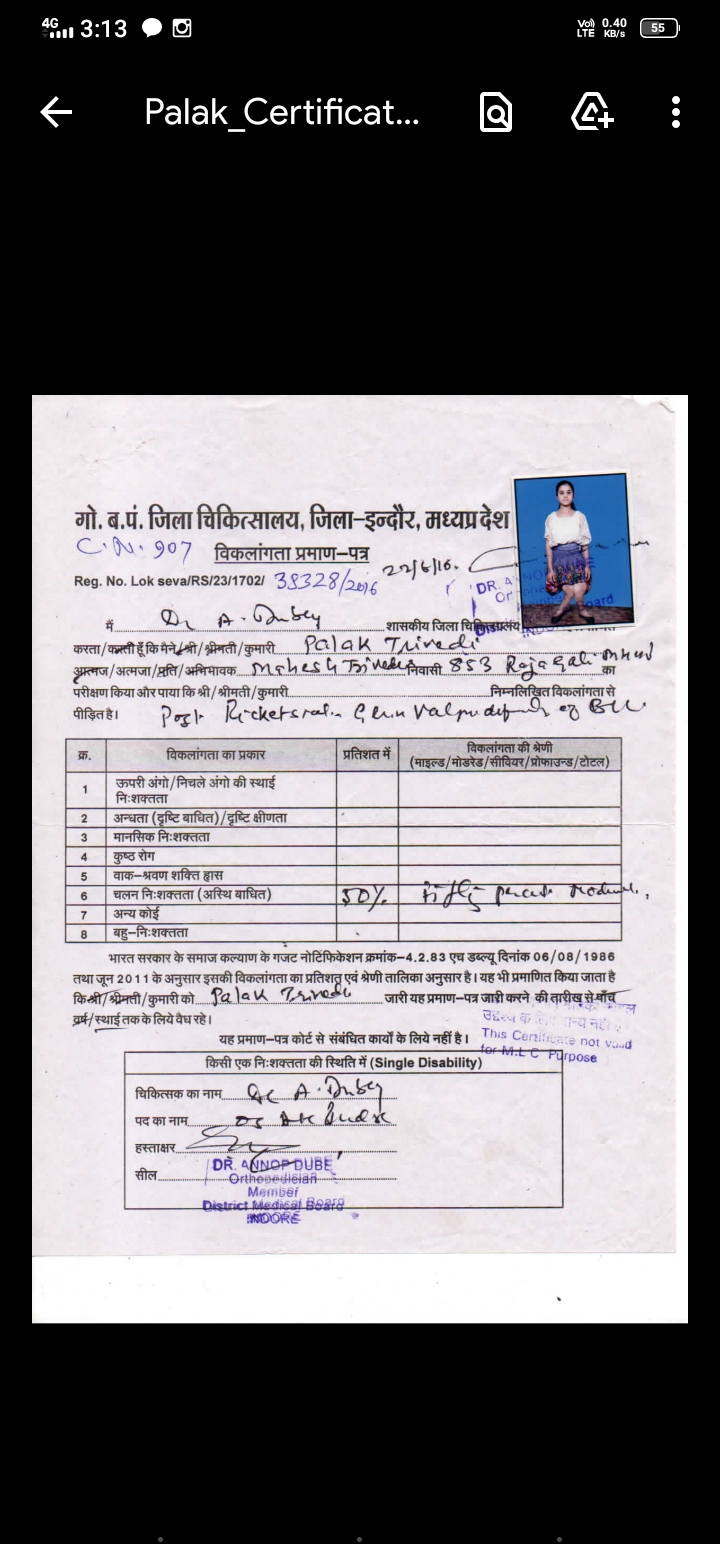 4G 3:13 Vo) LTE 0.40 KB/s 55
Palak_Certificat...
गो. ब.पं. जिला चिकित्सालय, जिला-इन्दौर, मध्यप्रदेश
C.N. 907 विकलांगता प्रमाण-पत्र
22/6/16.
Reg. No. Lok seva/RS/23/1702/ 38328/2016
DR. ANNOP DUBE
मैं Dr A. Dubey शासकीय जिला चिकित्सालय
करता/करती हूँ कि मैने/श्री/श्रीमती/कुमारी Palak Trivedi
आत्मज/आत्मजा/प्रति/अभिभावक Mahesh Trivedi निवासी 853 Raja gali का
परीक्षण किया और पाया कि श्री/श्रीमती/कुमारी निम्नलिखित विकलांगता से
पीड़ित है। Post of
क्र. विकलांगता का प्रकार प्रतिशत में विकलांगता की श्रेणी (माइल्ड/मोडरेड/सीवियर/प्रोफाउन्ड/टोटल)
1 ऊपरी अंगो/निचले अंगो की स्थाई निःशक्तता
2 अन्धता (दृष्टि बाधित)/दृष्टि क्षीणता
3 मानसिक निःशक्तता
4 कुष्ठ रोग
5 वाक-श्रवण शक्ति ह्रास
6 चलन निःशक्तता (अस्थि बाधित) 50% Fifty percent
7 अन्य कोई
8 बहु-निःशक्तता
भारत सरकार के समाज कल्याण के गजट नोटिफिकेशन क्रमांक-4.2.83 एच डब्ल्यू दिनांक 06/08/1986
तथा जून 2011 के अनुसार इसकी विकलांगता का प्रतिशत एवं श्रेणी तालिका अनुसार है। यह भी प्रमाणित किया जाता है
कि श्री/श्रीमती/कुमारी को Palak Trivedi जारी यह प्रमाण-पत्र जारी करने की तारीख से पाँच
वर्ष/स्थाई तक के लिये वैध रहे।
उद्देश्य के लिए मान्य नहीं है
This Certificate not valid
for M.L.C Purpose
यह प्रमाण-पत्र कोर्ट से संबंधित कार्यो के लिये नहीं है।
किसी एक निःशक्तता की स्थिति में (Single Disability)
चिकित्सक का नाम Dr A. Dubey
पद का नाम
हस्ताक्षर
सील DR. ANNOP DUBE
Orthopedician
Member
District Medical Board
INDORE